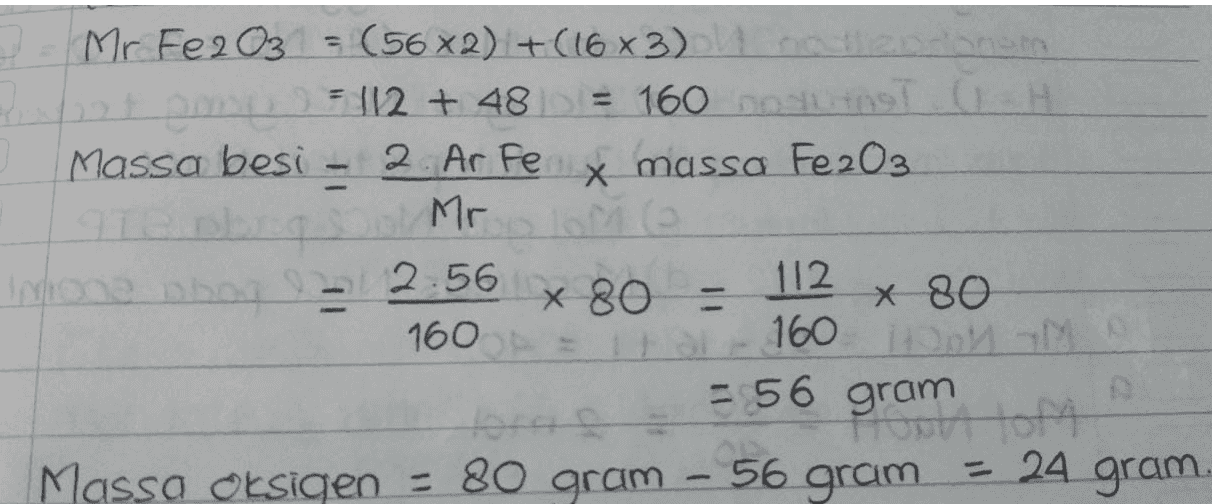 Mr Fe2O3 = (56 x 2) + (16 x 3)
= 112 + 48 = 160
Massa besi = 2. Ar Fe / Mr x massa Fe2O3
= 2.56 / 160 x 80 = 112 / 160 x 80
= 56 gram
Massa oksigen = 80 gram - 56 gram = 24 gram.